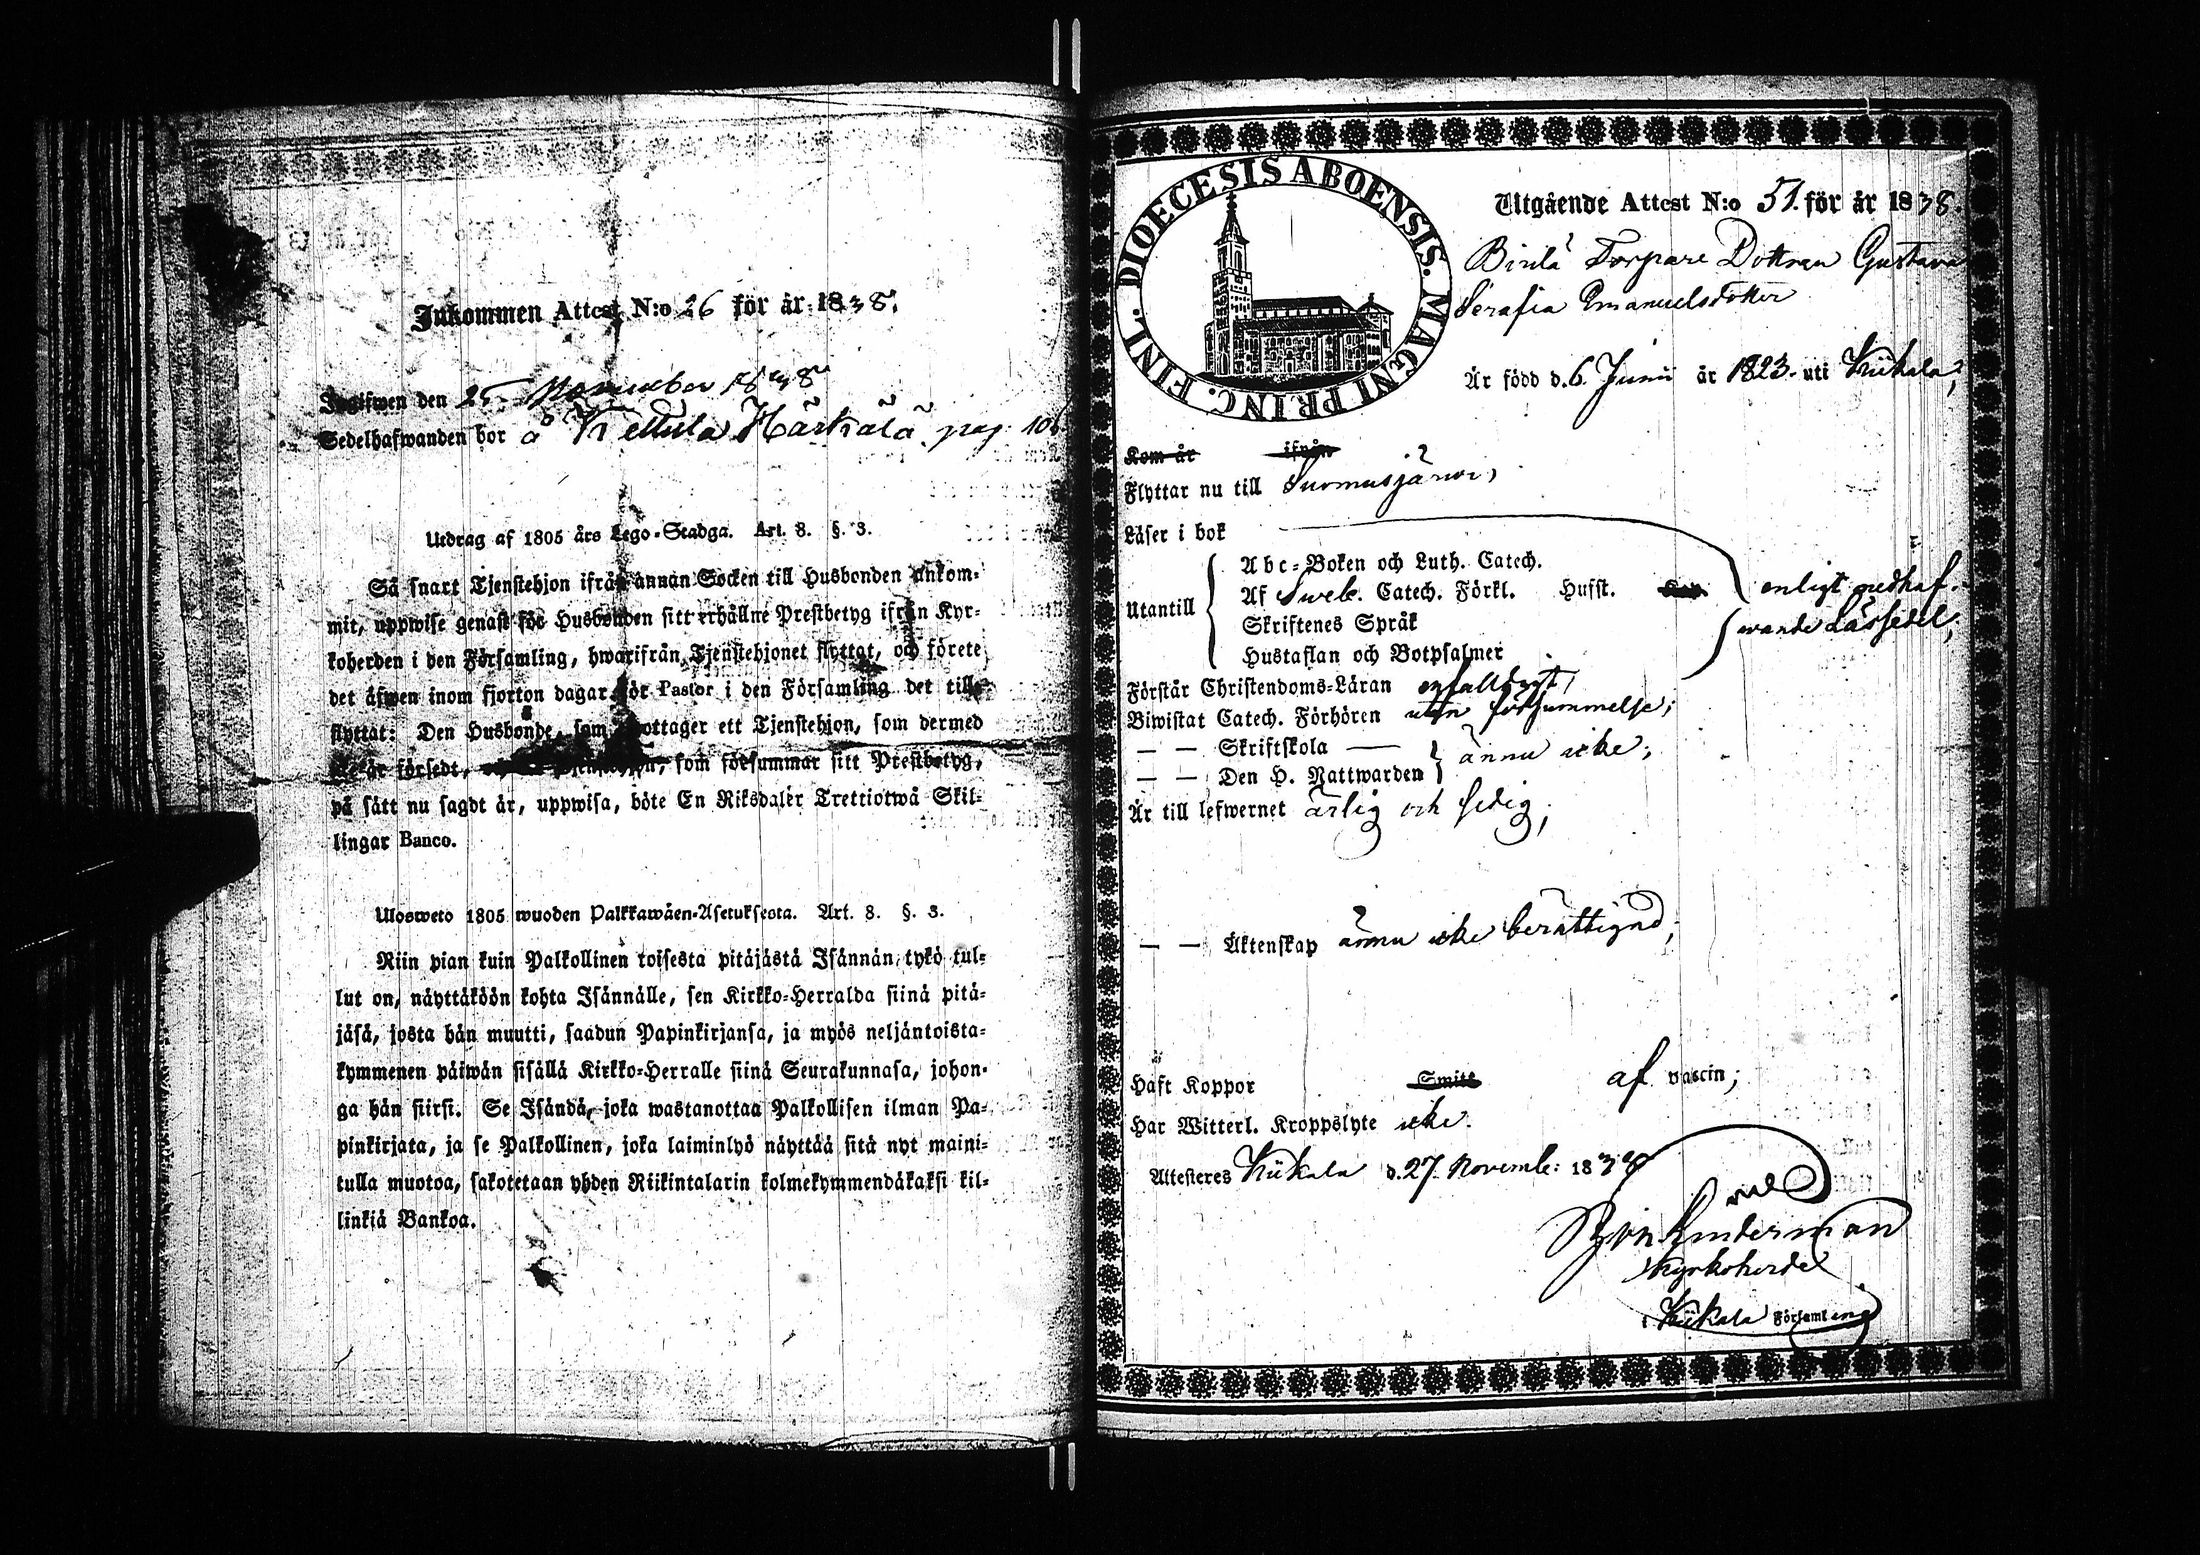 Inkommen Attest N:o 26 för år 1838.
Ingifwen den 25 November 1838
Sedelhafwanden bor å Kettula Härkälä pag. 106
Utdrag af 1805 års Lego-Stadga. Art. 8. §. 3.
Så snart Tjenstehjon ifrån annan Socken till Husbonden ankom-
mit, uppwise genast för Husbonden sitt erhållne Prestbetyg ifrån Kyr-
koherden i den Församling, hwarifrån Tjenstehjonet flyttat, och förete
det äfwen inom fjorton dagar för Pastor i den Församling det till-
flyttat: Den Husbonde, som mottager ett Tjenstehjon, som dermed
är försedt, som försummar sitt Prestbetyg,
på sätt nu sagdt är, uppwisa, böte En Riksdaler Trettiotwå Skil-
lingar Banco.
Ulosweto 1805 wuoden Palkkawäen-Asetuksesta. Art. 8. §. 3.
Niin pian kuin Palkollinen toisesta pitäjästä Isännän tykö tul-
lut on, näyttäköön kohta Isännälle, sen Kirkko-Herralda siinä pitä-
jäsä, josta hän muutti, saadun Papinkirjansa, ja myös neljäntoista-
kymmenen päiwän sisällä Kirkko-Herralle siinä Seurakunnasa, johon-
ga hän siirsi. Se Isändä, joka wastanottaa Palkollisen ilman Pa-
pinkirjata, ja se Palkollinen, joka laiminlyö näyttää sitä nyt maini-
tulla muotoa, sakotetaan yhden Riikintalarin kolmekymmendäkaksi kil-
linkiä Bankoa.
DIOECESIS ABOENSIS. MAGNI PRINC. FINL.
Utgående Attest N:o 51. för år 1838.
Torpare Dottren Gustava
Serafia Emanuelsdotter
Är född d. 6 Junii år 1823. uti Kiikala,
Kom år ifrån
Flyttar nu till Suomusjärwi,
Läser i bok
Utantill
Abc-Boken och Luth. Catech.
Af Sweb. Catech. Förkl. Husst.
Skriftenes Språk
Hustaflan och Botpsalmer
enligt medhaf-
wande Läsesedel,
Förstår Christendoms-Läran enfalldigt,
Biwistat Catech. Förhören utan försummelse;
— — Skriftskola —
— — Den H. Nattwarden
ännu icke;
Är till lefwernet ärlig och sedig;
— — Äktenskap ännu icke berättigad;
Haft Koppor Smitt af vaccin;
Har Witterl. Kroppslyte icke.
Attesteres Kiikala d. 27 Novemb: 1838
Kyrkoherde
i Kiikala Församling